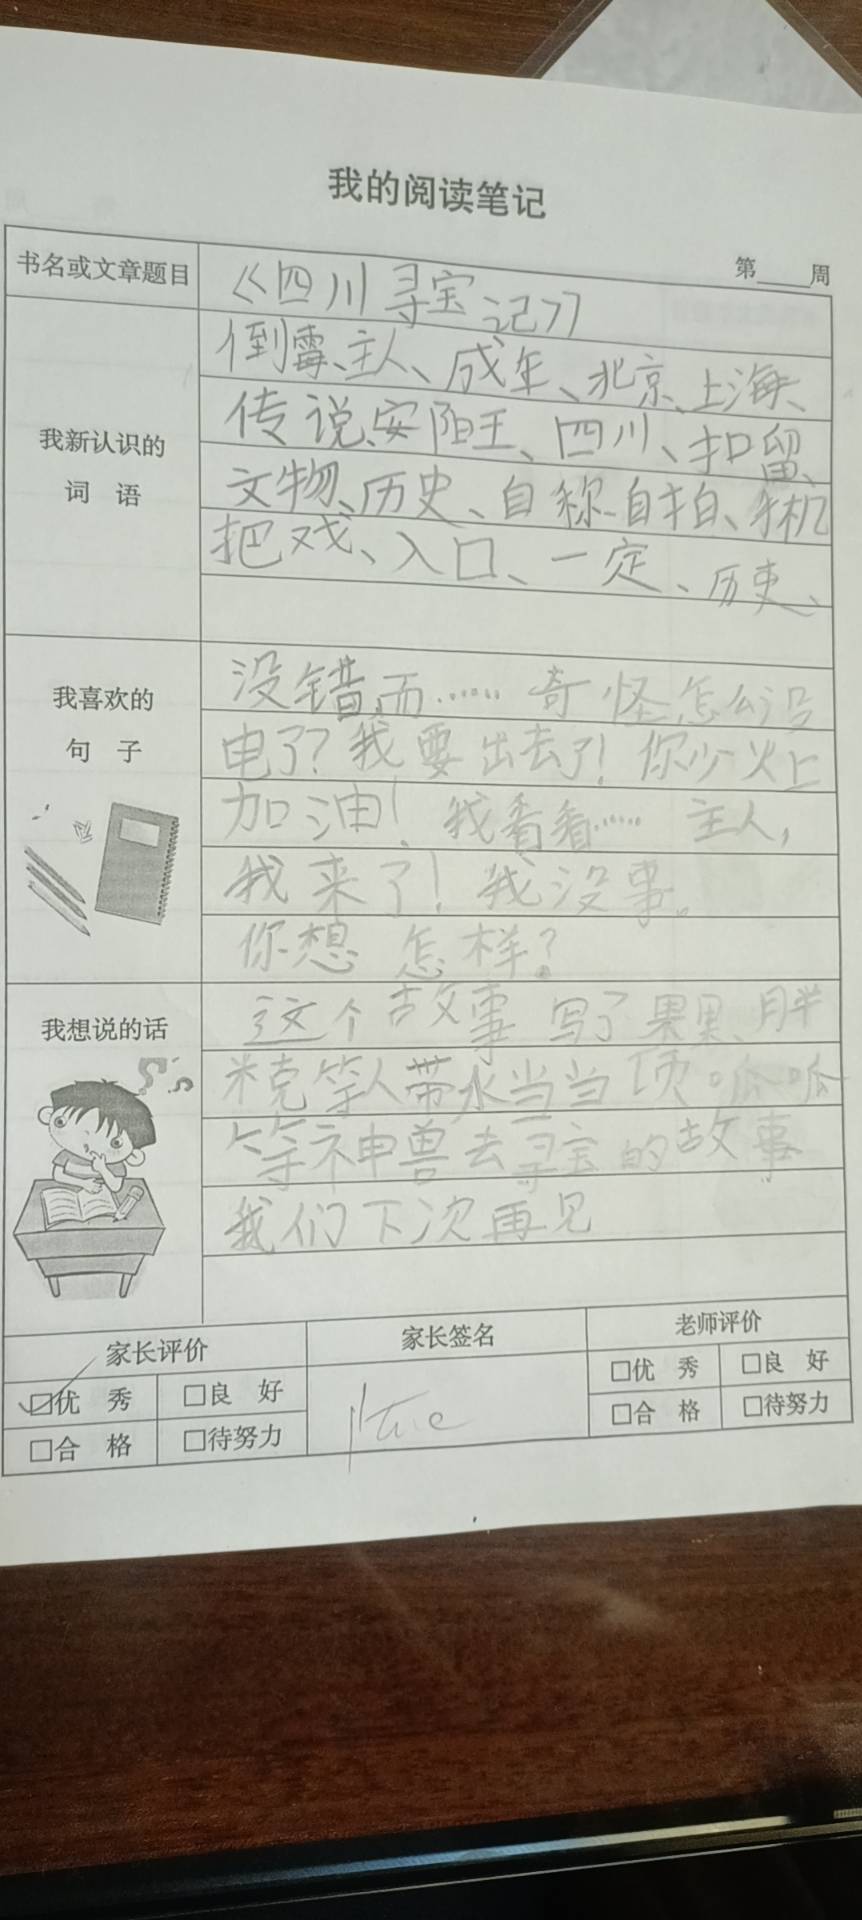 我的阅读笔记
第____周
书名或文章题目
《四川寻宝记》
我新认识的
词 语
倒霉、主人、成年、北京、上海、
传说、安阳王、四川、扣留、
文物、历史、自称、自拍、手机
把戏、入口、一定、历史、
我喜欢的
句 子
没错,而…… 奇怪怎么没
电了?我要出去了!你少火上
加油!我看看…… 主人,
我来了!我没事。
你想 怎样?
我想说的话
这个故事 写了果果、胖
等人带水当当 呱呱
等神兽去寻宝的故事
我们下次再见
家长评价
家长签名
老师评价
□优 秀
□良 好
□合 格
□待努力
□优 秀
□良 好
□合 格
□待努力